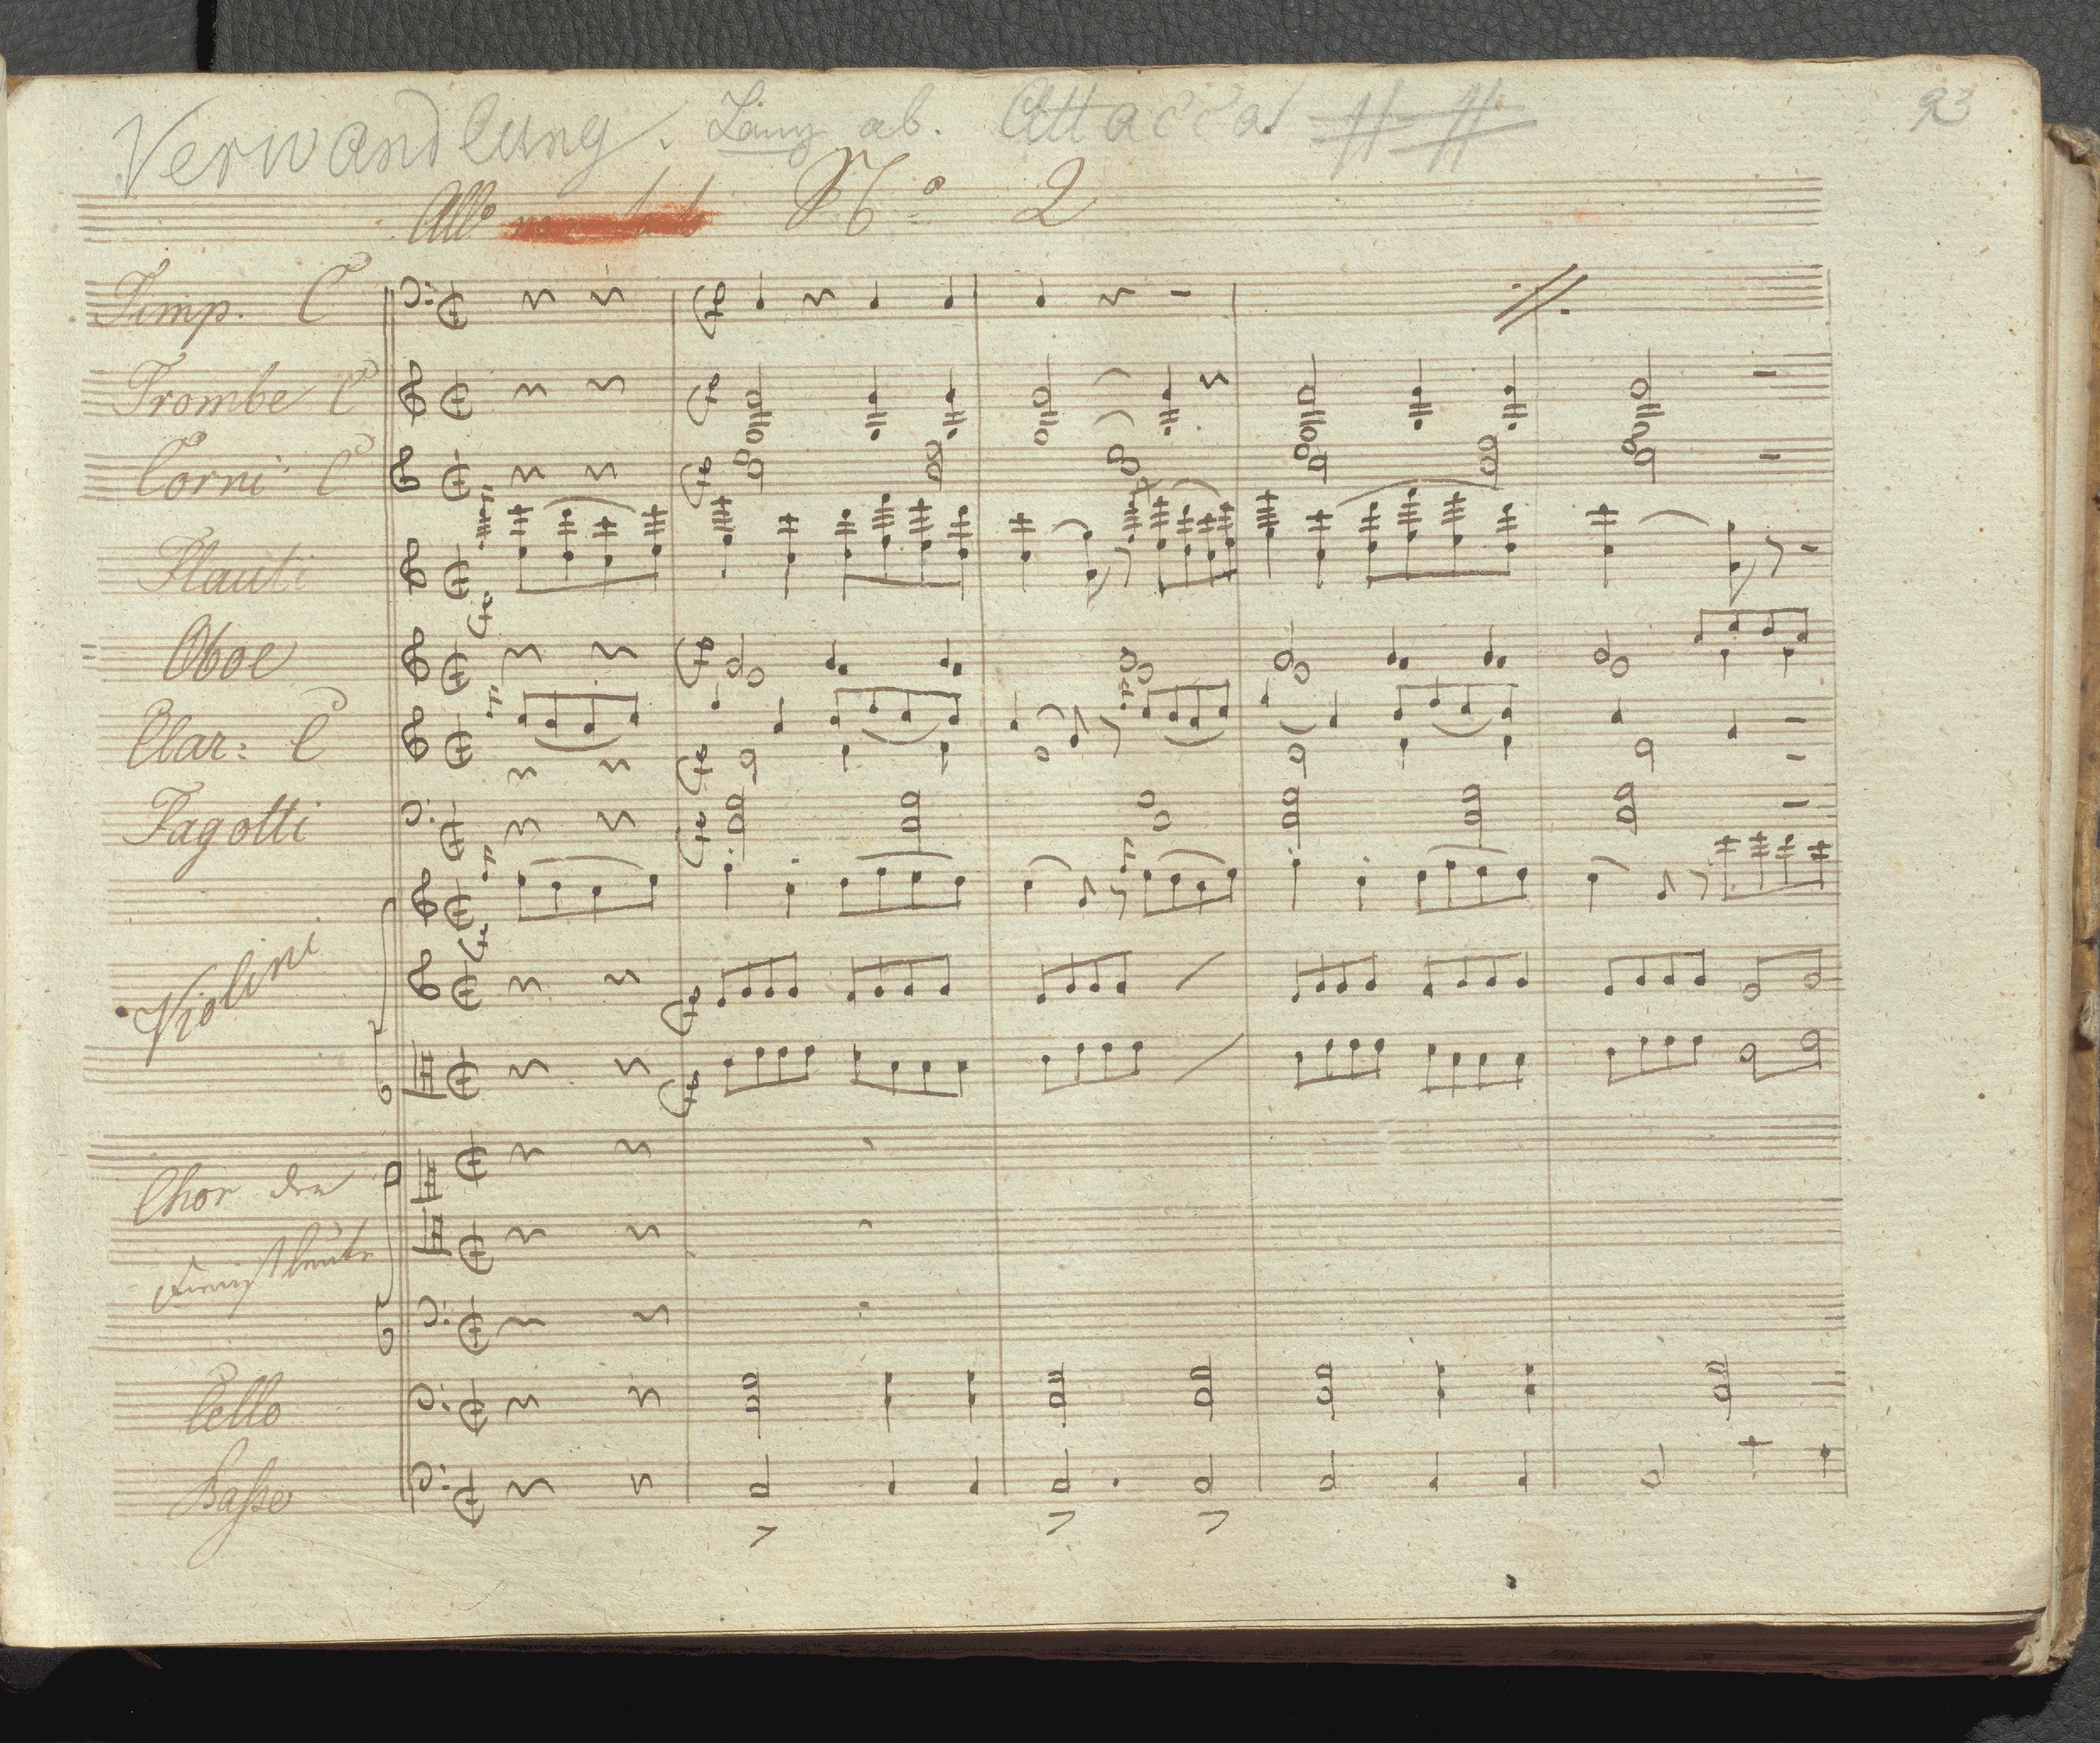 Verwandlung. Lanz ab. Attacca
93
All° N° 2
Timp. C
Trombe C
Corni C
Flauti
Oboe
Clar: C
Fagotti
Violini
Chor der
Cello
Basse